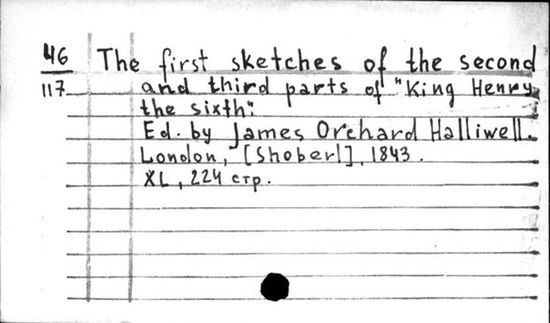 46
117
The first sketches of the second
and third parts of "King Henry
the sixth".
Ed. by James Orchard Halliwell.
London, [Shoberl], 1843.
XL, 224 стр.